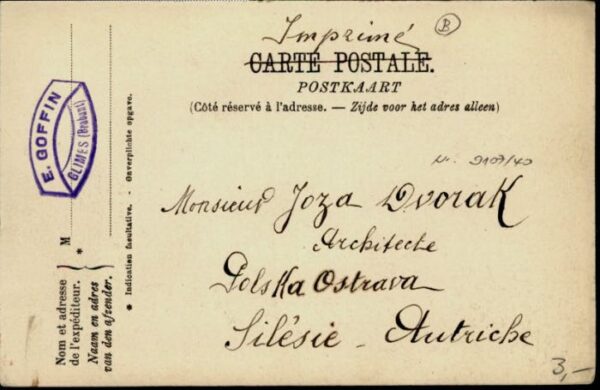 Imprimé
B
CARTE POSTALE.
POSTKAART
(Côté réservé à l'adresse. — Zijde voor het adres alleen)
Nr. 9107/40
Monsieur Joza Dvorak
Architecte
Polska Ostrava
Silésie - Autriche
3,-
E. GOFFIN
GLIMES (Brabant)
M *
Nom et adresse
de l'expéditeur.
Naam en adres
van den afzender.
* Indication facultative. - Onverplichte opgave.